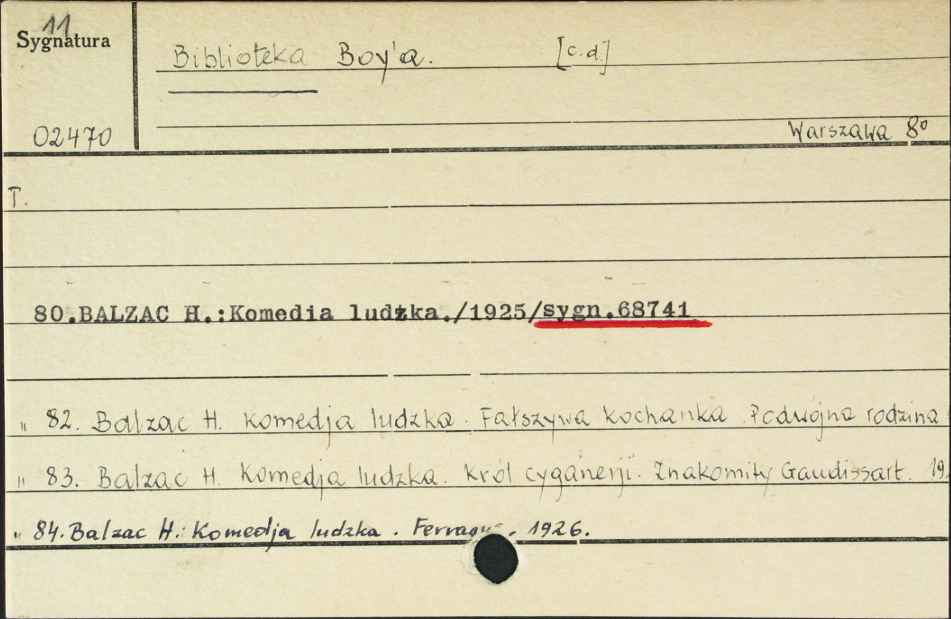 11
Sygnatura
Biblioteka Boy'a. [c.d.]
02470
Warszawa 8º
T.
80.BALZAC H.:Komedia ludzka./1925/sygn.68741
" 82. Balzac H. Komedja ludzka. Fałszywa kochanka. Podwójna rodzina
" 83. Balzac H. Komedja ludzka. Król cyganerji. Znakomity Gaudissart. 19
" 84. Balzac H.: Komedja ludzka. Ferragus, 1926.